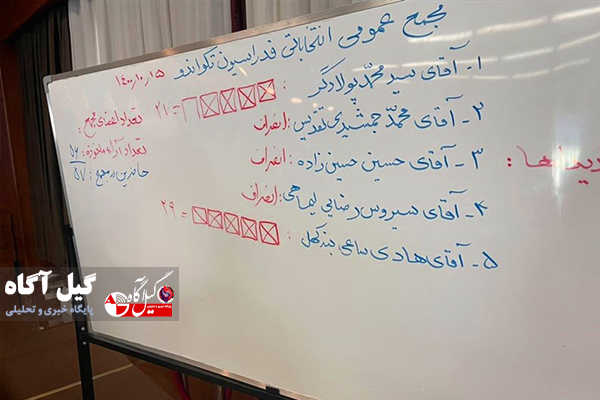 مجمع عمومی انتخاباتی فدراسیون تکواندو ۱۴۰۰٫۱۰٫۱۵
۱- آقای سید محمد پولادگر : = ۲۷
۲- آقای محمد جمشیدی تقدیس : انصراف
۳- آقای حسین حسین زاده : انصراف
۴- آقای سیروس رضایی لیماهی : انصراف
۵- آقای هادی ساعی بنه کهل : = ۲۹
تعداد اعضای مجمع :
تعداد آراء ماخوذه : ۵۶
حاضرین در مجمع : ۵۷
گیل آگاه
پایگاه خبری و تحلیلی
گیل آگاه